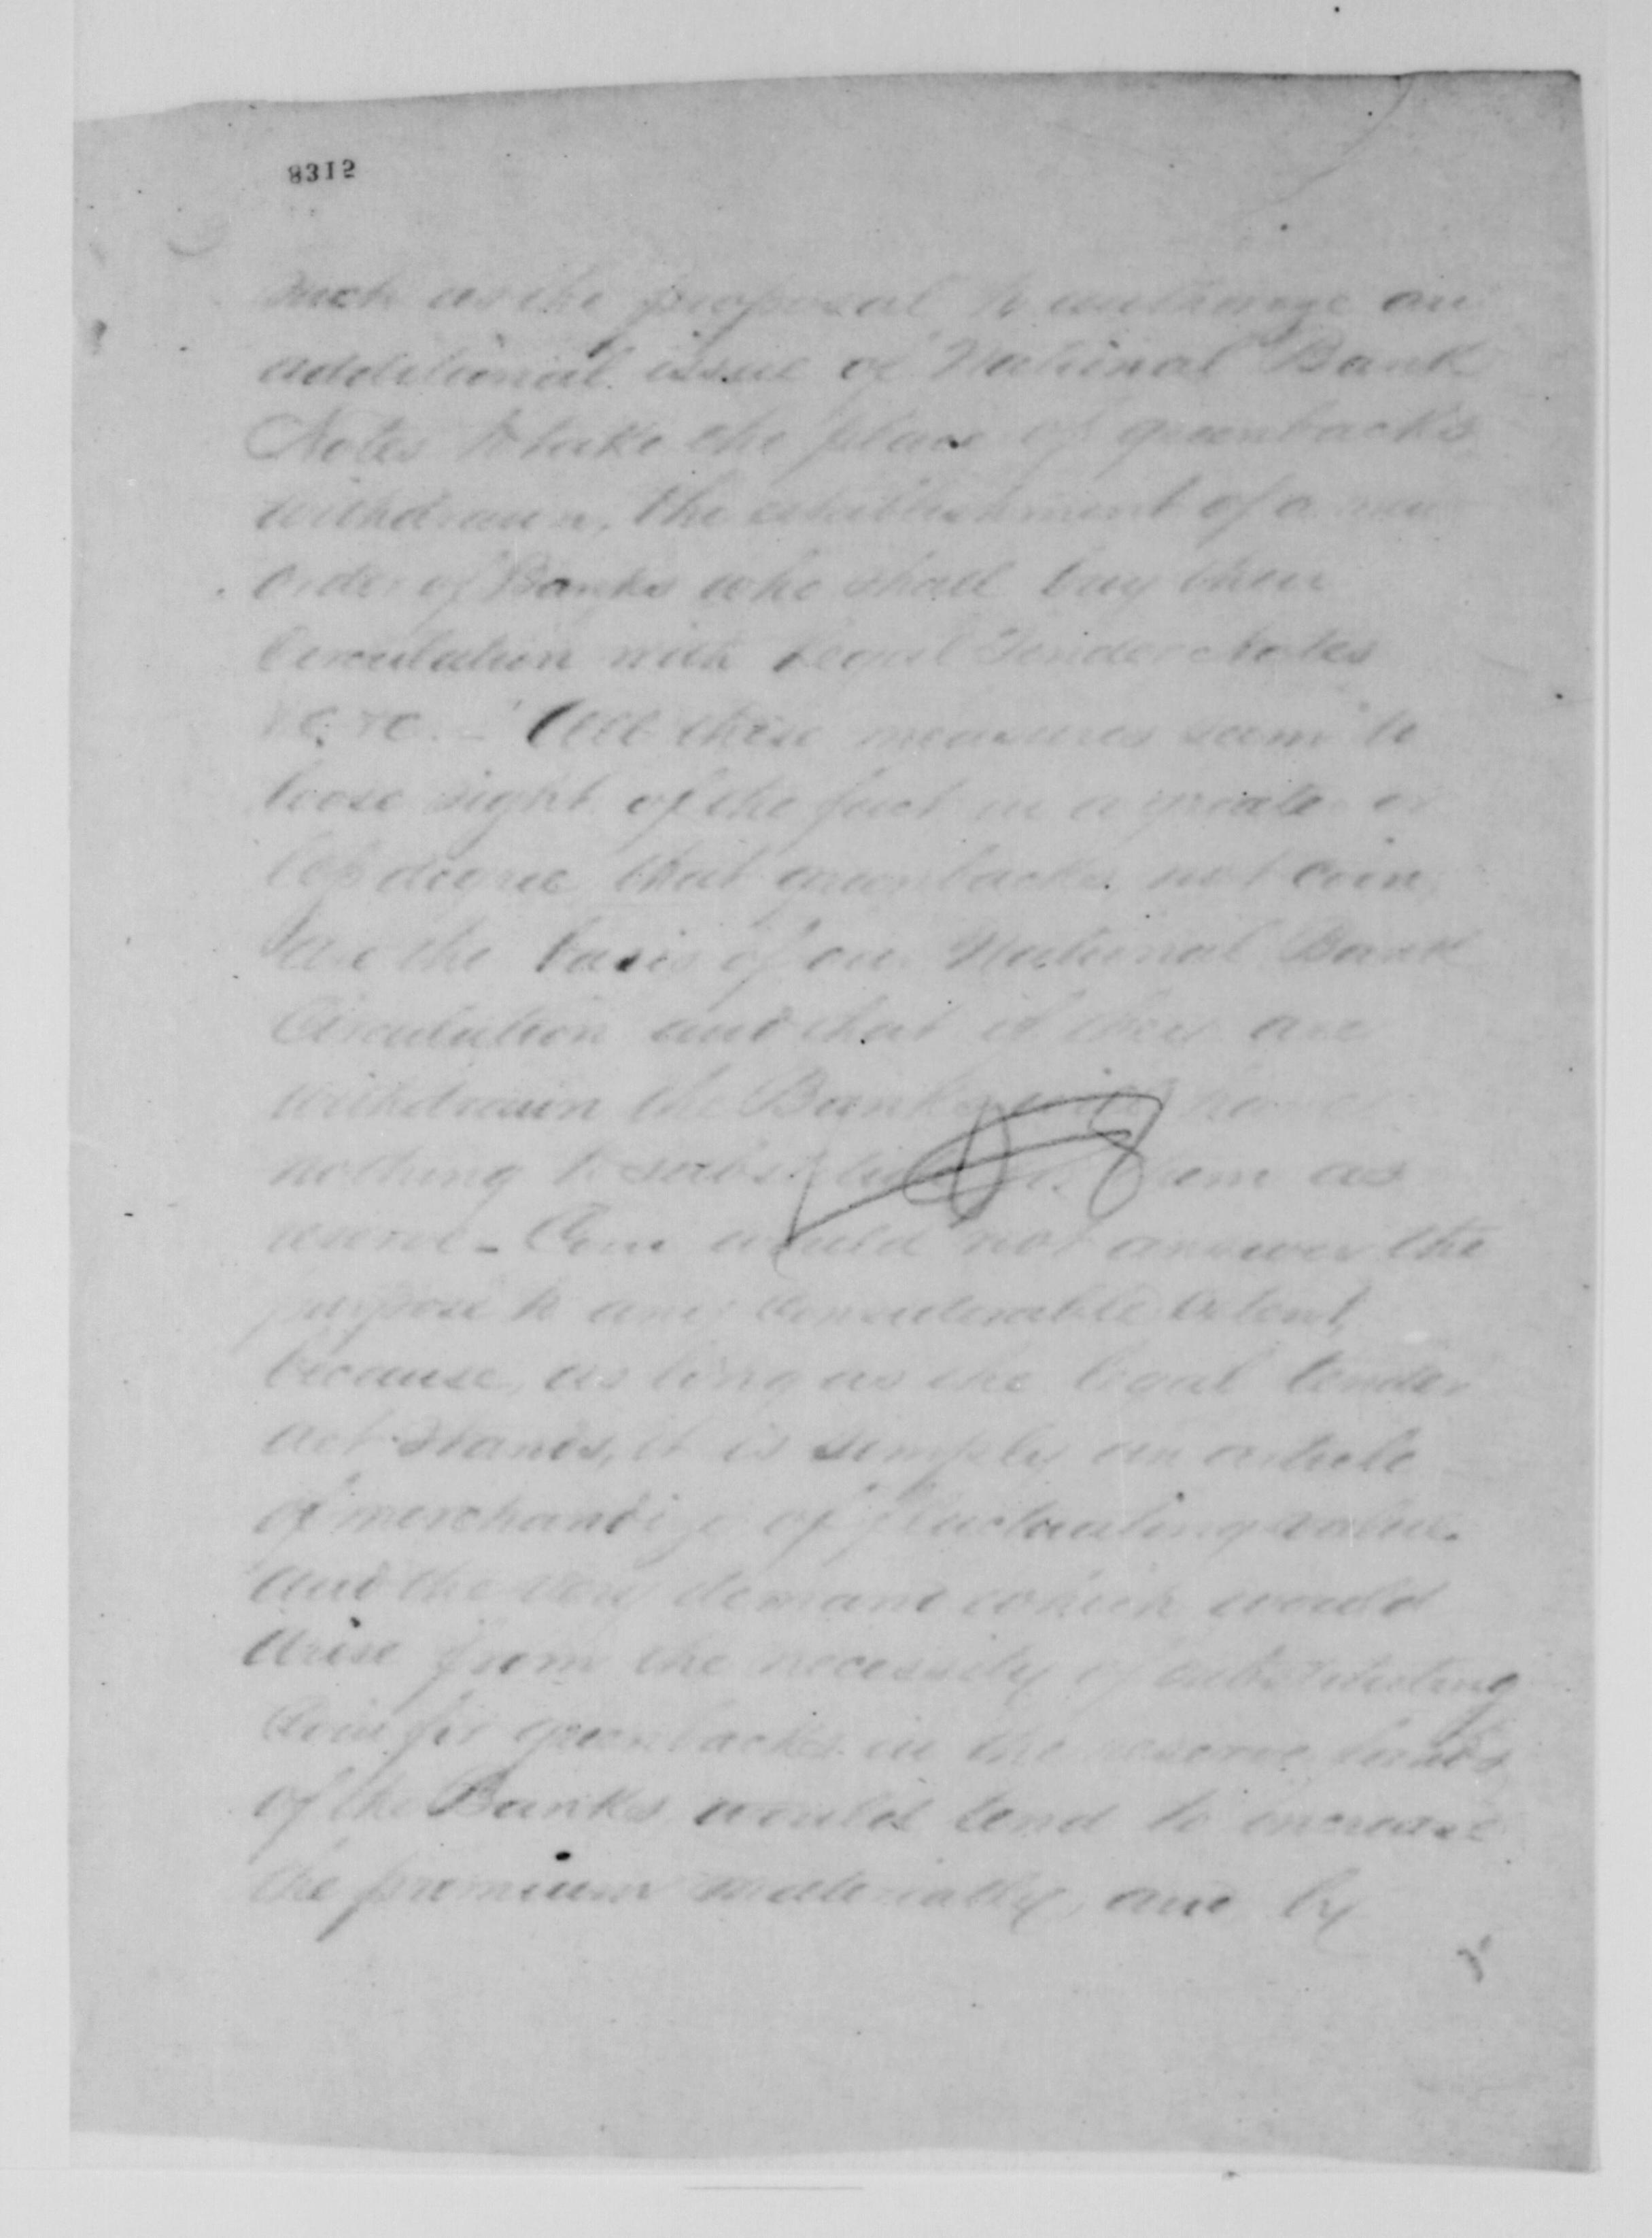 8312
such as the proposal to authorize an
additional issue of National Bank
Notes to take the place of greenbacks
withdrawn, the establishment of a new
order of Banks who shall buy their
Circulation with Legal Tender Notes
&c. &c. - All these measures seem to
loose sight of the fact in a greater or
less degree that greenbacks, not coin,
are the basis of our National Bank
Circulation and that if they are
withdrawn the Banks will have
nothing to substitute for them as
reserve - Coin would not answer the
purpose to any considerable extent,
because, as long as the legal tender
act stands, it is simply an article
of merchandize of fluctuating value.
And the very demand which would
arise from the necessity of substituting
Coin for greenbacks in the reserve funds
of the Banks would tend to increase
the premium materially, and by